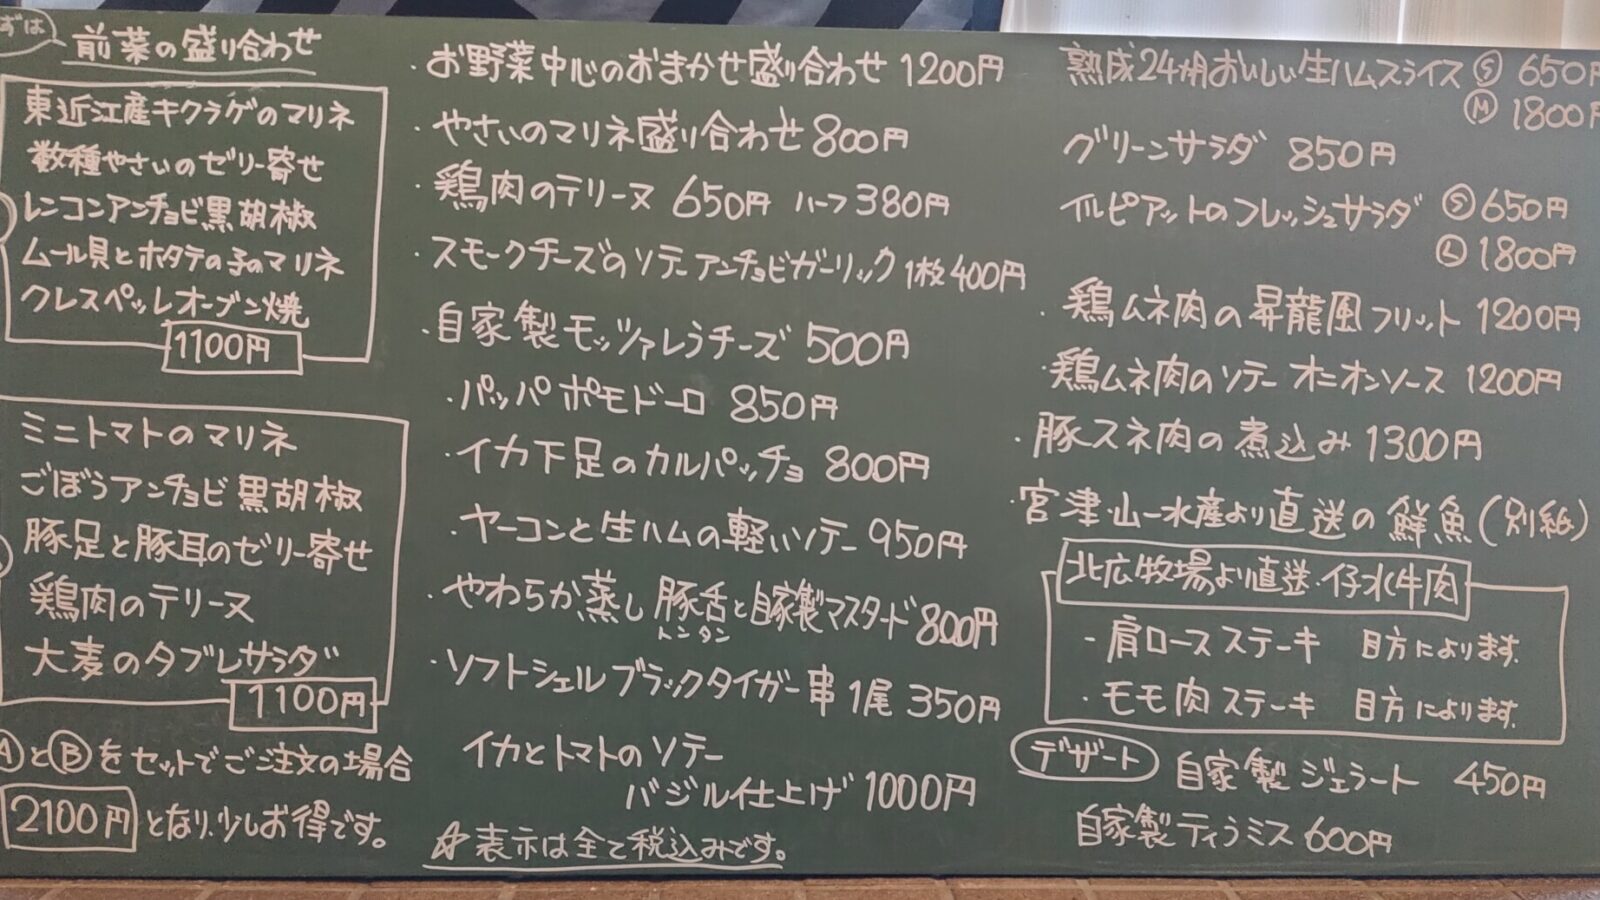 ずは
前菜の盛り合わせ
東近江産キクラゲのマリネ
数種やさいのゼリー寄せ
レンコンアンチョビ黒胡椒
ムール貝とホタテの子のマリネ
クレスペッレオーブン焼
1100円
ミニトマトのマリネ
ごぼうアンチョビ黒胡椒
豚足と豚耳のゼリー寄せ
鶏肉のテリーヌ
大麦のタブレサラダ
1100円
ⒶとⒷをセットでご注文の場合
2100円となり、少しお得です。
・お野菜中心のおまかせ盛り合わせ 1200円
・やさいのマリネ盛り合わせ 800円
・鶏肉のテリーヌ 650円 ハーフ380円
・スモークチーズのソテーアンチョビガーリック 1枚400円
・自家製モッツァレラチーズ 500円
・パッパポモドーロ 850円
・イカ下足のカルパッチョ 800円
・ヤーコンと生ハムの軽いソテー 950円
・やわらか蒸し豚舌と自家製マスタード 800円
トンタン
・ソフトシェルブラックタイガー串 1尾 350円
イカとトマトのソテー
バジル仕上げ 1000円
☆表示は全て税込みです。
熟成24カ月おいしい生ハムスライス Ⓢ 650円
Ⓜ 1800円
グリーンサラダ 850円
イルピアットのフレッシュサラダ Ⓢ 650円
Ⓛ 1800円
・鶏ムネ肉の昇龍風フリット 1200円
・鶏ムネ肉のソテー オニオンソース 1200円
・豚スネ肉の煮込み 1300円
・宮津・山一水産より直送の鮮魚(別紙)
北広牧場より直送・仔水牛肉
- 肩ロースステーキ 目方によります.
・モモ肉ステーキ 目方によります.
デザート 自家製ジェラート 450円
自家製ティラミス 600円